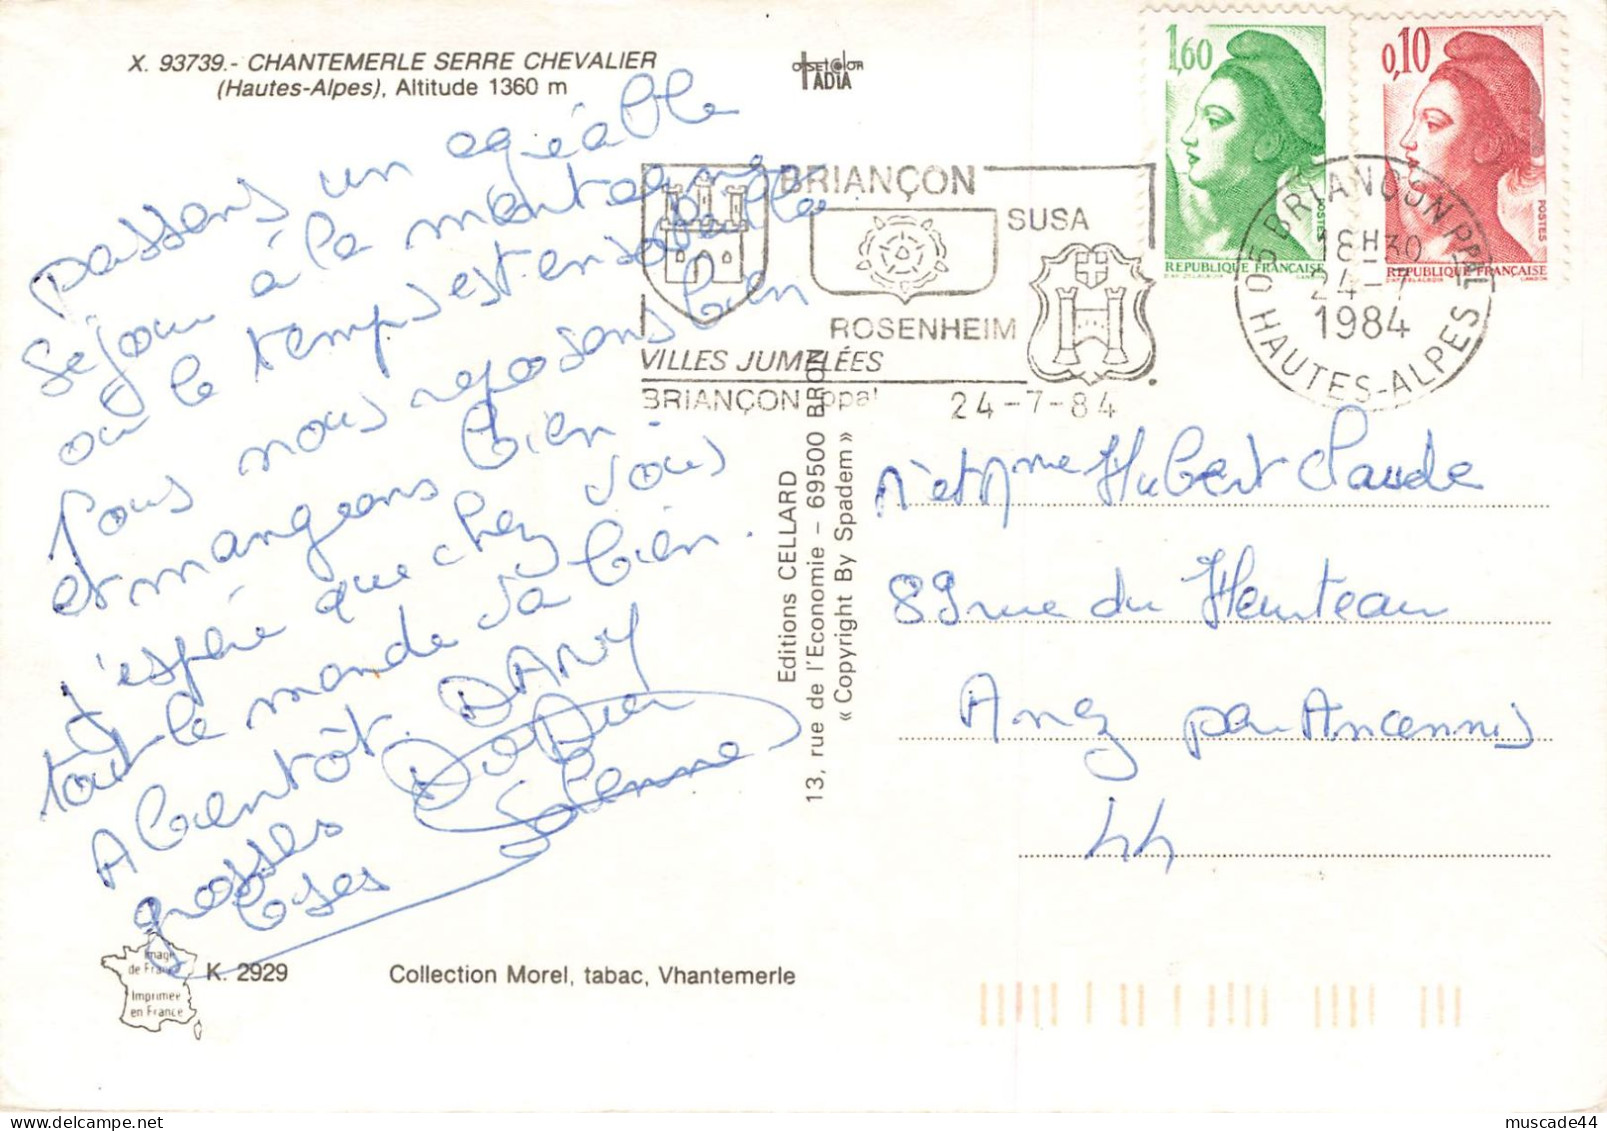 X. 93739.- CHANTEMERLE SERRE CHEVALIER
(Hautes-Alpes), Altitude 1360 m
passons un agréable
séjour à la montagne
ou le temps est ensoleillé
Nous nous reposons bien
et mangeons bien.
J'espère que chez vous
tout le monde va bien.
A bientôt. DANY
grosses Didier
bses Solenne
Image
de France
Imprimée
en France
K. 2929
Collection Morel, tabac, Vhantemerle
Editions CELLARD
13, rue de l'Economie - 69500 BRON
« Copyright By Spadem »
offsetcolor
IADIA
BRIANÇON
SUSA
ROSENHEIM
VILLES JUMELÉES
BRIANÇON ppal
24-7-84
1,60
POSTES
REPUBLIQUE FRANÇAISE
0,10
POSTES
REPUBLIQUE FRANÇAISE
05 BRIANÇON PPAL
18H30
24-7
1984
HAUTES-ALPES
Mr et Mme Hubert Claude
89 rue du Hauteau
Anez par Ancennis
44
muscade44